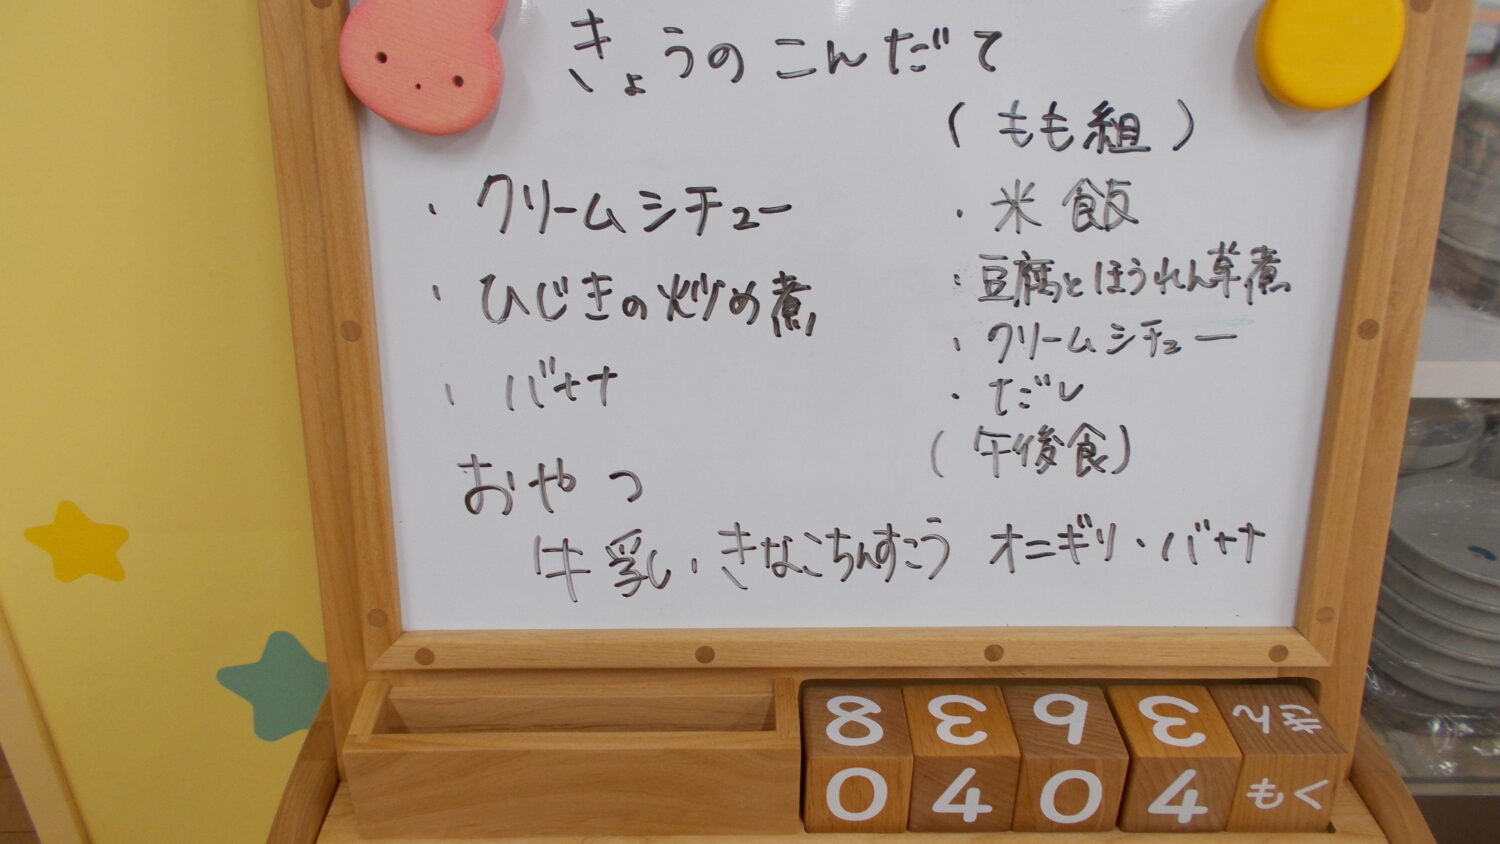 きょうのこんだて
・クリームシチュー
・ひじきの炒め煮
・バナナ
おやつ
牛乳・きなこちんすこう
（もも組）
・米飯
・豆腐とほうれん草煮
・クリームシチュー
・だし
（午後食）
オニギリ・バナナ
8 3 9 3 きん
0 4 0 4 もく